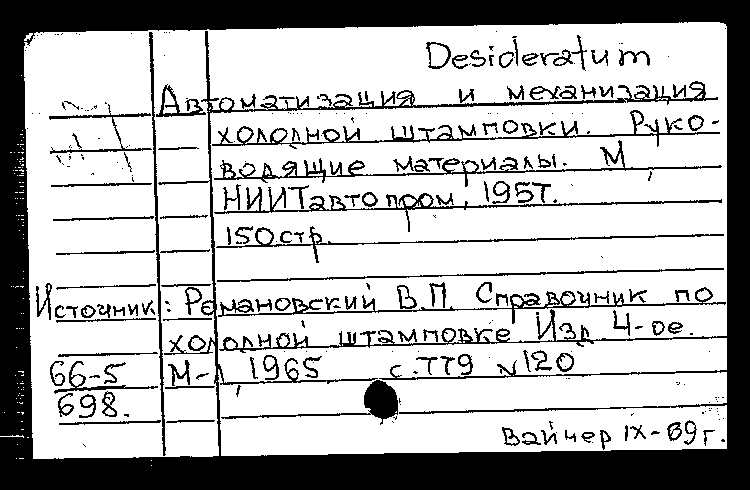 Desideratum
Автоматизация и механизация
холодной штамповки. Руко-
водящие материалы. М,
НИИТавтопром, 1957.
150стр.
Источник: Романовский В.П. Справочник по
холодной штамповке Изд 4-ое.
66-5 М-Л, 1965 с.779 N120
698.
Вайнер IX-69г.